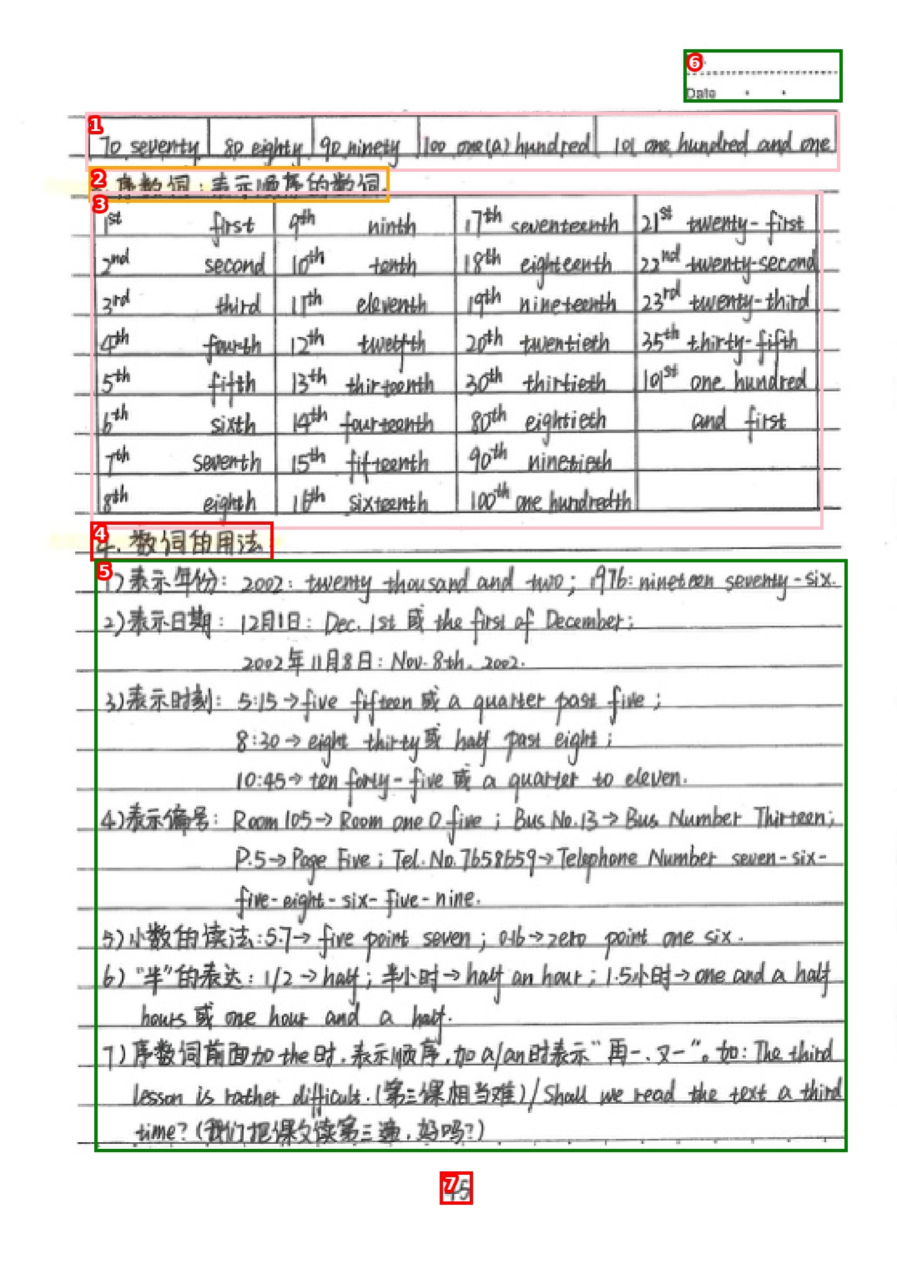 Date
70 seventy 80 eighty 90 ninety 100 one(a) hundred 101 one hundred and one
序数词:表示顺序的数词.
1st first 9th ninth 17th seventeenth 21st twenty-first
2nd second 10th tenth 18th eighteenth 22nd twenty-second
3rd third 11th eleventh 19th nineteenth 23rd twenty-third
4th fourth 12th twelfth 20th twentieth 35th thirty-fifth
5th fifth 13th thirteenth 30th thirtieth 101st one hundred
6th sixth 14th fourteenth 80th eightieth and first
7th seventh 15th fifteenth 90th ninetieth
8th eighth 16th sixteenth 100th one hundredth
4. 数词的用法
1)表示年份: 2002: twenty thousand and two; 1976: nineteen seventy-six.
2)表示日期: 12月1日: Dec. 1st 或 the first of December;
2002年11月8日: Nov. 8th, 2002.
3)表示时刻: 5:15→five fifteen 或 a quarter past five;
8:30→eight thirty 或 half past eight;
10:45→ten forty-five 或 a quarter to eleven.
4)表示编号: Room 105→Room one O five; Bus No.13→Bus Number Thirteen;
P.5→Page Five; Tel. No. 7658659→Telephone Number seven-six-
five-eight-six-five-nine.
5)小数的读法: 5.7→five point seven; 0.16→zero point one six.
6)"半"的表达: 1/2→half; 半小时→half an hour; 1.5小时→one and a half
hours 或 one hour and a half.
7)序数词前面加the时,表示顺序,加a/an时表示"再一、又一"。如: The third
lesson is rather difficult.(第三课相当难)/Shall we read the text a third
time?(我们把课文读第三遍,好吗?)
45
1
2
3
4
5
6
7